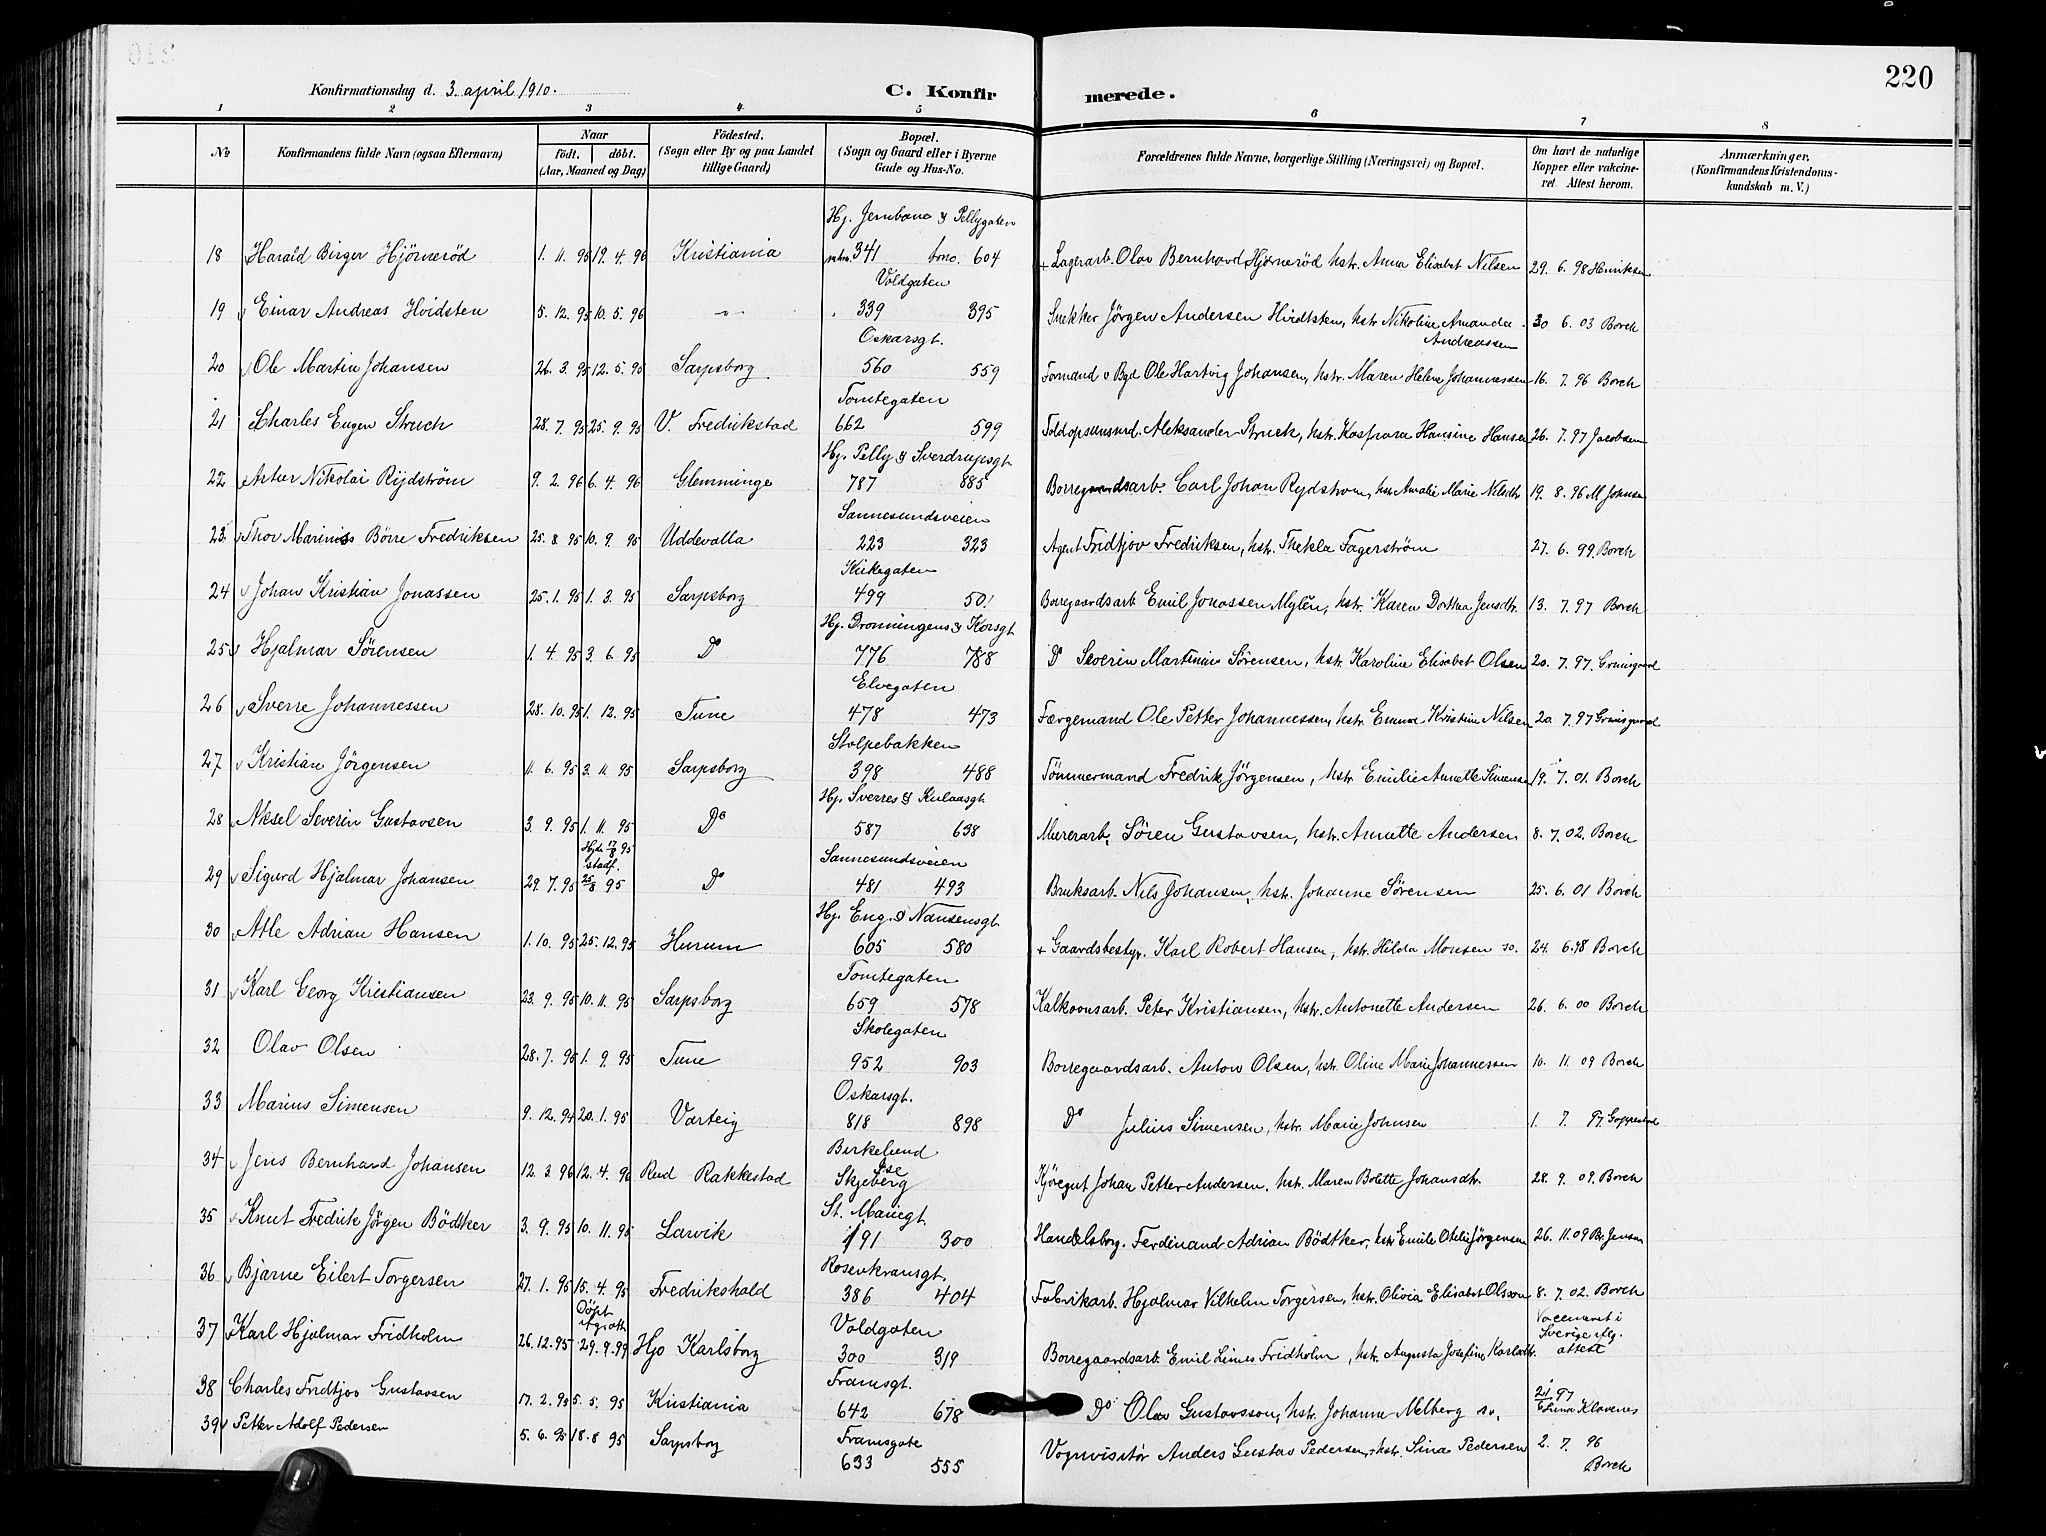 220
Konfirmationsdag d. 3. april 1910.
C. Konfirmerede.
1 2 3 4 5 6 7 8
No
Konfirmandens fulde Navn (ogsaa Efternavn)
Naar
født. døbt.
(Aar, Maaned og Dag)
Födested.
(Sogn eller By og paa Landet
tillige Gaard)
Bopæl.
(Sogn og Gaard eller i Byerne
Gade og Hus-No.
Forældrenes fulde Navne, borgerlige Stilling (Næringsvei) og Bopæl.
Om havt de naturlige
Kopper eller vakcine-
ret Attest herom.
Anmærkninger.
(Konfirmandens Kristendoms-
kundskab m. V.)
Hj. Jernbane & Pellygaten
18 Harald Birger Hjørnerød 1. 11. 95 19. 4. 96 Kristiania mtno. 341 brno. 604 + Lagerarb. Olav Bernhard Hjørnerød hstr. Anna Elisabet Nilsen 29. 6. 98 Henriksen
Voldgaten
19 Einar Andreas Hvidsten 5. 12. 95 10. 5. 96 -"- 339 395 Snekker Jørgen Andersen Hvidtsten, hstr. Nikoline Amanda Andreassen 30 6. 03 Borch
Oskarsgt.
20 Ole Martin Johansen 26. 3. 95 12. 5. 95 Sarpsborg 560 559 Formand v Bgd Ole Hartvig Johansen, hstr. Maren Helene Johannessen 16. 7. 96 Borch
Tomtegaten
21 Charles Eugen Struck 28. 7. 95 25. 9. 95 V. Fredrikstad 662 599 Toldopsynsmd. Aleksander Struck, hstr. Kaspara Hansine Hansen 26. 7. 97 Jacobsen
Hj. Pelly & Sverdrupsgt.
22 Artur Nikolai Rydström 9. 2. 96 6. 4. 96 Glemminge 787 885 Borregaardsarb. Carl Johan Rydstrøm, hstr Amalie Marie Nilsdtr. 19. 8. 96 M Johnsen
Sannesundsveien
23 Thor Marinius Börre Fredriksen 25. 8. 95 10. 9. 95 Uddevalla 223 323 Agent Fridtjov Fredriksen, hstr. Thekla Fagerström 27. 6. 99. Borch
Kirkegaten
24 Johan Kristian Jonassen 25. 1. 95 1. 3. 95 Sarpsborg 499 501 Borregaardsarb. Emil Jonassen Mylén, hstr. Karen Dorthea Jensdtr. 13. 7. 97 Borch
Hj. Dronningens & Korsgt.
25 Hjalmar Sørensen 1. 4. 95 3. 6. 95 Do 776 788 Do Severin Martinius Sørensen, hstr. Karoline Elisabet Olsen 20. 7. 97. Grimsgaard
Elvegaten
26 Sverre Johannessen 28. 10. 95 1. 12. 95 Tune 478 473 Færgemand Ole Petter Johannessen, hstr. Emma Kristine Nilsen 20 7. 97 Grimsgaard
Stolpebakken
27 Kristian Jörgensen 11. 6. 95 3. 11. 95 Sarpsborg 398 488 Tömmermand Fredrik Jörgensen, hstr. Emilie Annette Simensen 19. 7. 01. Borch
Hj. Sverres & Kulaasgt.
28 Aksel Severin Gustavsen 3. 9. 95 1. 11. 95 Do 587 638 Murerarb. Sören Gustavsen, hstr. Annette Andersen 8. 7. 02. Borch
Hjd. 17/8 95
stadf.
Sannesundsveien
29 Sigurd Hjalmar Johansen 29. 7. 95 25/8 95 Do 481 493 Bruksarb. Nils Johansen, hstr. Johanne Sörensen 25. 6. 01 Borch
Hj. Eng. & Nansensgt.
30 Atle Adrian Hansen 1. 10. 95 25. 12. 95 Hurum 605 580 + Gaardsbestyr. Karl Robert Hansen, hstr. Hilda Monsen so. 24. 6. 98 Borch
Tomtegaten
31 Karl Georg Kristiansen 23. 9. 95 10. 11. 95 Sarpsborg 659 578 Kalkovnsarb. Peter Kristiansen, hstr. Antonette Andersen 26. 6. 00 Borch
Skolegaten
32 Olav Olsen 28. 7. 95 1. 9. 95 Tune 952 903 Borregaardsarb. Anton Olsen, hstr. Oline Marie Johannessen 10. 11. 09 Borch
Oskarsgt.
33 Marius Simensen 9. 12. 94 20. 1. 95 Varteig 818 898 Do Julius Simensen, hstr. Marie Johnsen 1. 7. 97
Birkelund
34 Jens Bernhard Johansen 12. 3. 96 12. 4. 96 Rud Rakkestad Ise Skjeberg Kjöregut Johan Petter Andersen. hstr. Maren Bolette Johansdtr. 28. 9. 09. Borch
St. Mariegt.
35 Knut Fredrik Jörgen Bödtker 3. 9. 95 10. 11. 95 Larvik 191 300 Handelsborg. Ferdinand Adrian Bödtker, hstr Emilie Otelie Jörgensen 26. 11. 09 Br. Jensen
Rosenkransgt.
36 Bjarne Eilert Torgersen 27. 1. 95 15. 4. 95 Fredrikshald 386 404 Fabrikarb. Hjalmar Vilhelm Torgersen, hstr. Olivia Elisabet Olsson 8. 7. 02. Borch
Döpt
Voldgaten
Vaccineret i
Sverige flg.
attest
37 Karl Hjalmar Fridholm 26. 12. 95 29. 9. 99 Hjo Karlsborg 300 319 Borregaardsarb. Emil Linus Fridholm, hstr. Augusta Josefine Karlsdtr.
Framsgt.
38 Charles Fridtjov Gustavsen 17. 2. 95 5. 5. 95 Kristiania 642 678 Do Olav Gustavsson, hstr. Johanna Melberg sv. 97 Elina Klavenes
Framsgate
39 Petter Adolf Pedersen 5. 6. 95 18. 8 95 Sarpsborg 633 555 Vognvisitør Anders Gustav Pedersen, hstr. Sina Pedersen 2. 7. 96
Borch